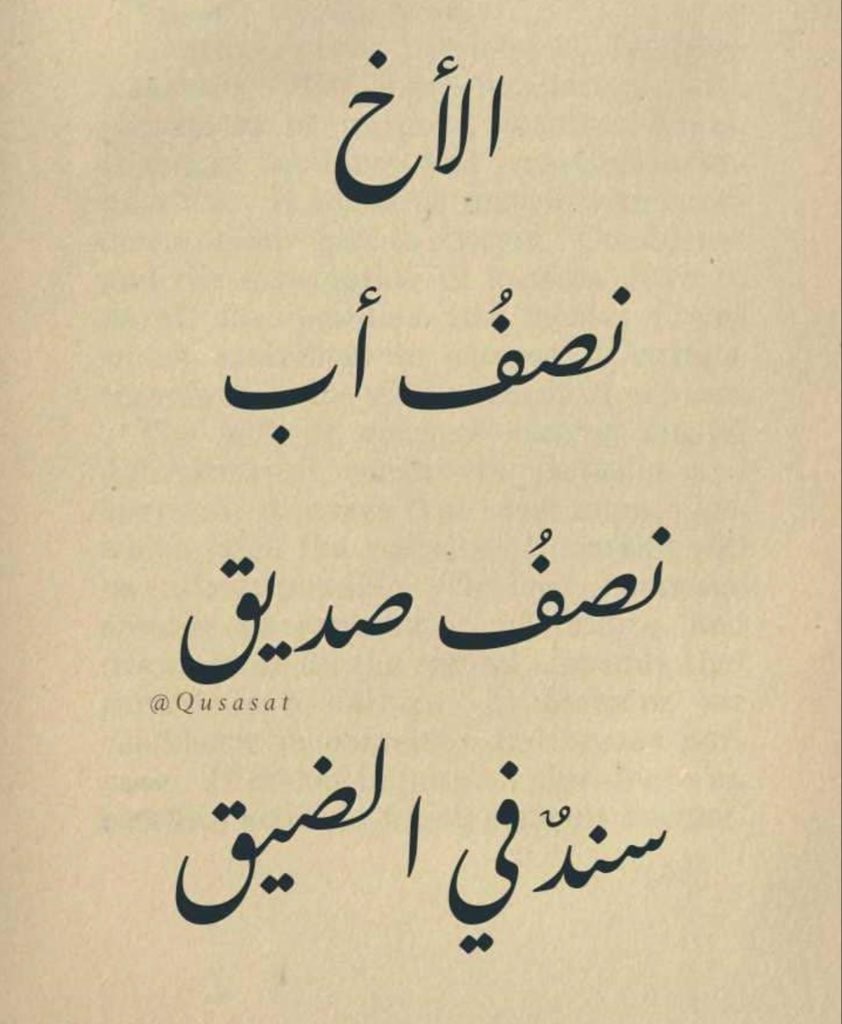 الأخ
نصفُ أب
نصفُ صديق
@Qusasat
سندٌ في الضيق